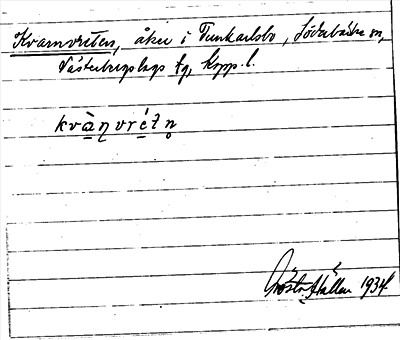 Kvarnvreten, åker i Tunkarlsbo, Söderbärke sn,
Västerbergslags tg, Kopp. l.
kvàṇvrétn̥
Gösta Hallan 1934